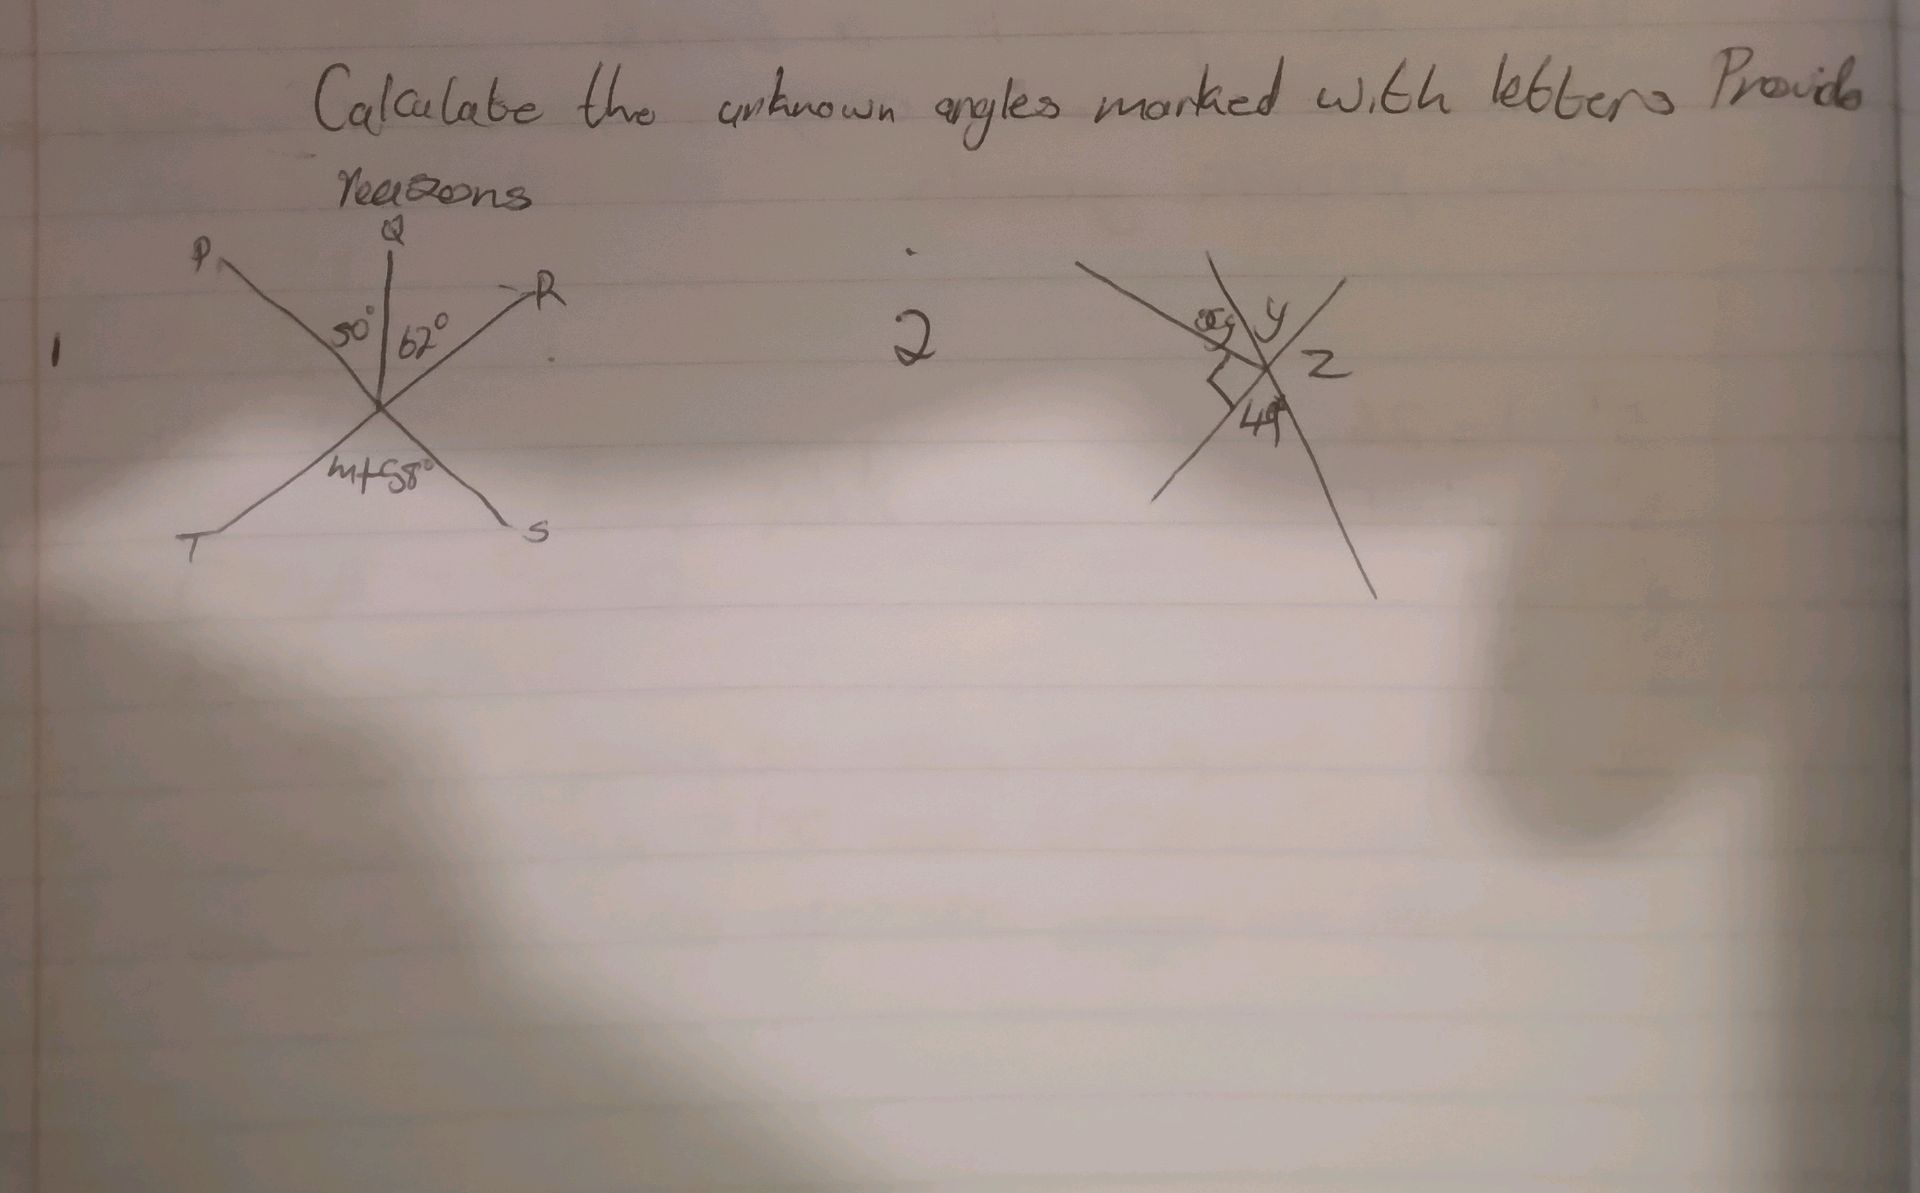 Calculate the unknown angles marked with letters Provide
reasons
P
Q
R
50°
62°
1
m+58°
T
S
2
y
Z
49°